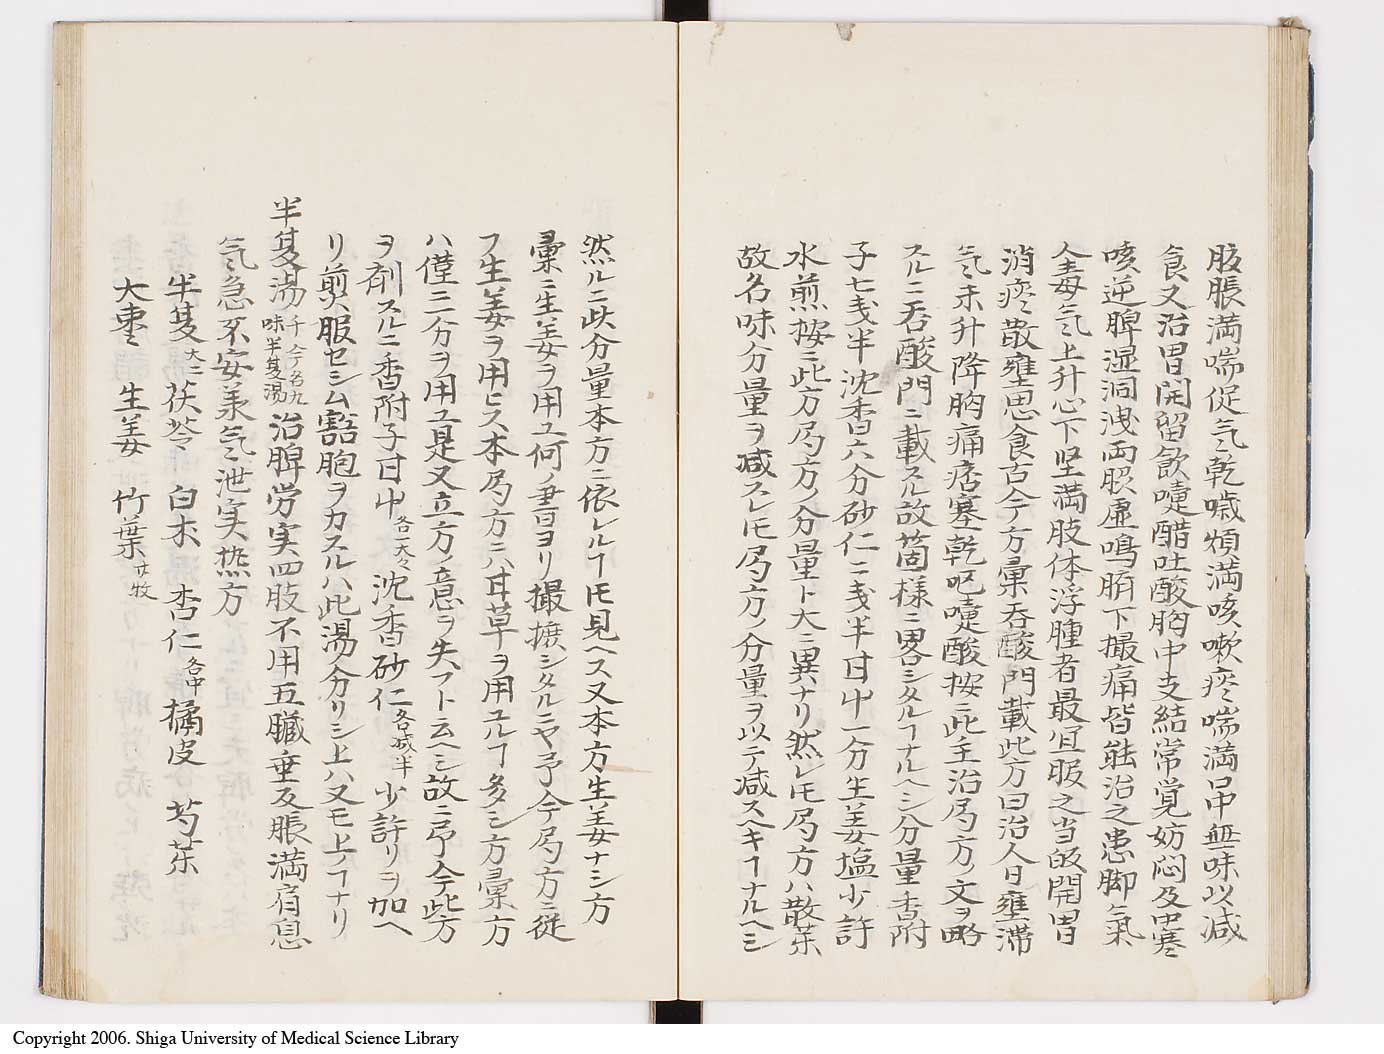 脹満喘促气乾噦煩満咳嗽痰喘満口中無味以減
食又治胃開留飲噫醋吐酸胸中支結常覚妨悶及中寒
咳逆脾湿洞洩両肷虚鳴臍下撮痛皆能治之患脚氣
人毒气上升心下坚満肢体浮腫者最宜服之当啟開胃
消痰散壅思食古今方彙吞酸門載此方曰治人日壅滞
气不升降胸痛痞塞乾呕噫酸按ニ此主治局方ノ文ヲ略
スルニ吞酸門ニ載スル故箇様ニ畧シタルヿナルヘシ分量香附
子七戔半沈香六分砂仁二戔半甘屮一分生姜塩少許
水煎按ニ此方局方ノ分量ト大ニ異ナリ然レ𪜈局方ハ散茶
故名味分量ヲ减スレ𪜈局方ノ分量ヲ以テ减スヘキヿナルヘシ
然ルニ此分量本方ニ依レルヿ𪜈見ヘス又本方生姜ナシ方
彙ニ生姜ヲ用ユ何ノ書ヨリ撮摭シタルニヤ予今局方ニ従
フ生姜ヲ用ヒス本局方ニハ甘草ヲ用ユルヿ多シ方彙方
ハ僅ニ一分ヲ用ユ是又立方ノ意ヲ失フト云ヘシ故ニ予今此方
ヲ剤スルニ香附子甘屮各一大沈香砂仁各减半少許リヲ加ヘ
リ煎服セシム豁胞ヲカスルハ此湯ノ分リシ上ハ又モ上ノヿナリ
半夏湯千今名九味半夏湯治脾劳実四肢不用五臓乖反脹満肩息
气急不安羕气泄实热方
半夏大二茯苓白朮杏仁各中橘皮芍茶
大棗生姜竹葉廿牧
Copyright 2006. Shiga University of Medical Science Library